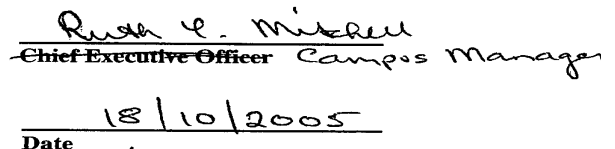 Ruth Y. Mitchell
Chief Executive Officer Campos Manager
18/10/2005
Date